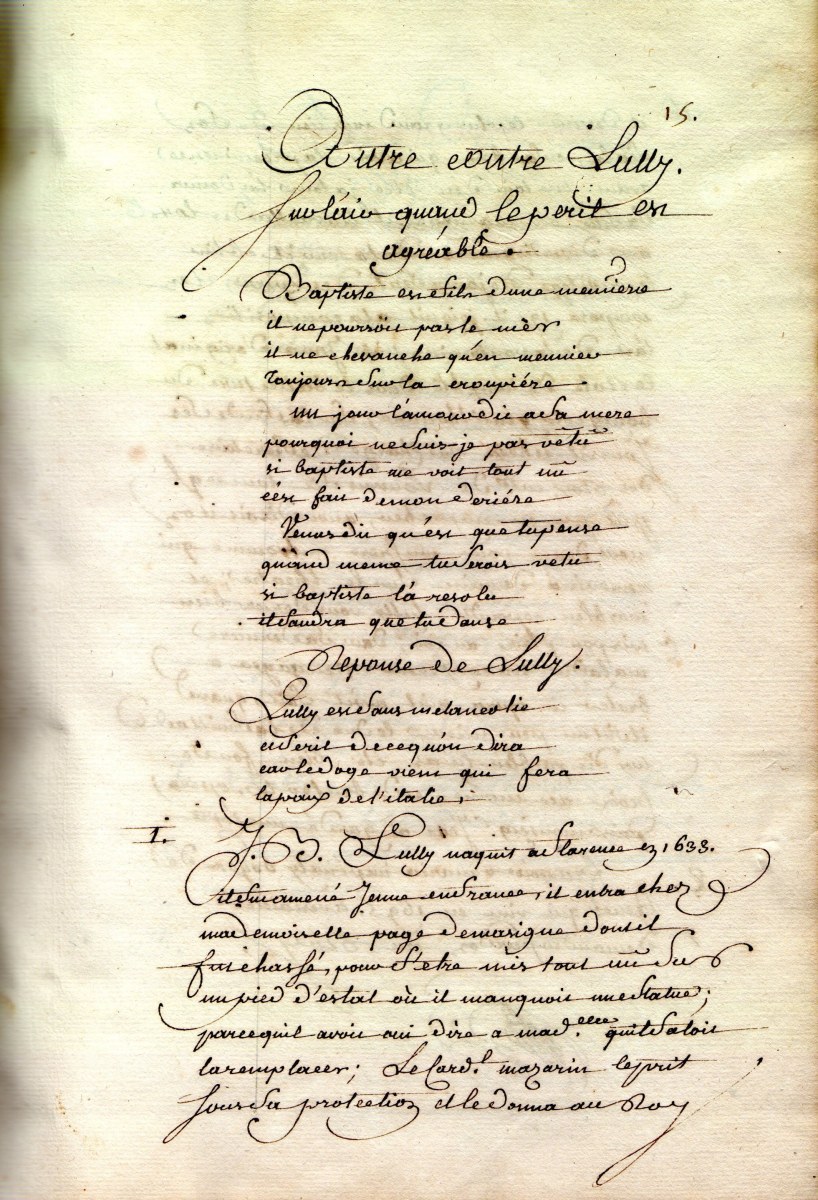 15.
Autre contre Lully.
Sur l'air quand le perit en
agréable.
Baptiste est fils d'une meuniere
il ne pouroit pas le nier
il ne chevauche qu'en meunier
Toujours sur la croupiére
un jour l'amour dit a sa mere
pourquoi ne suis-je pas vêtu
si baptiste me voit tout nû
c'ést fait de mon deriére
Venus dit qu'est que tu pense
quand meme tu serois vetu
si baptiste l'á resolu
il faudra que tu danse
Reponse de Lully.
Lully est sans melancolie
et se rit de ce qu'ón dira
car le doge vient qui fera
la paix de l'italie;
1. J. B. Lully naquit a florence en 1633.
il fut amené Jeune en france, il entra chez
mademoiselle page
fut chassé, pour s'etre mis tout nû sur
un pied d'estal où il manquoit une statue;
parcequil avoit oui dire a mad.elle quil faloit
la remplacer; Le Card.l mazarin le prit
sous sa protection et le donna au Roy